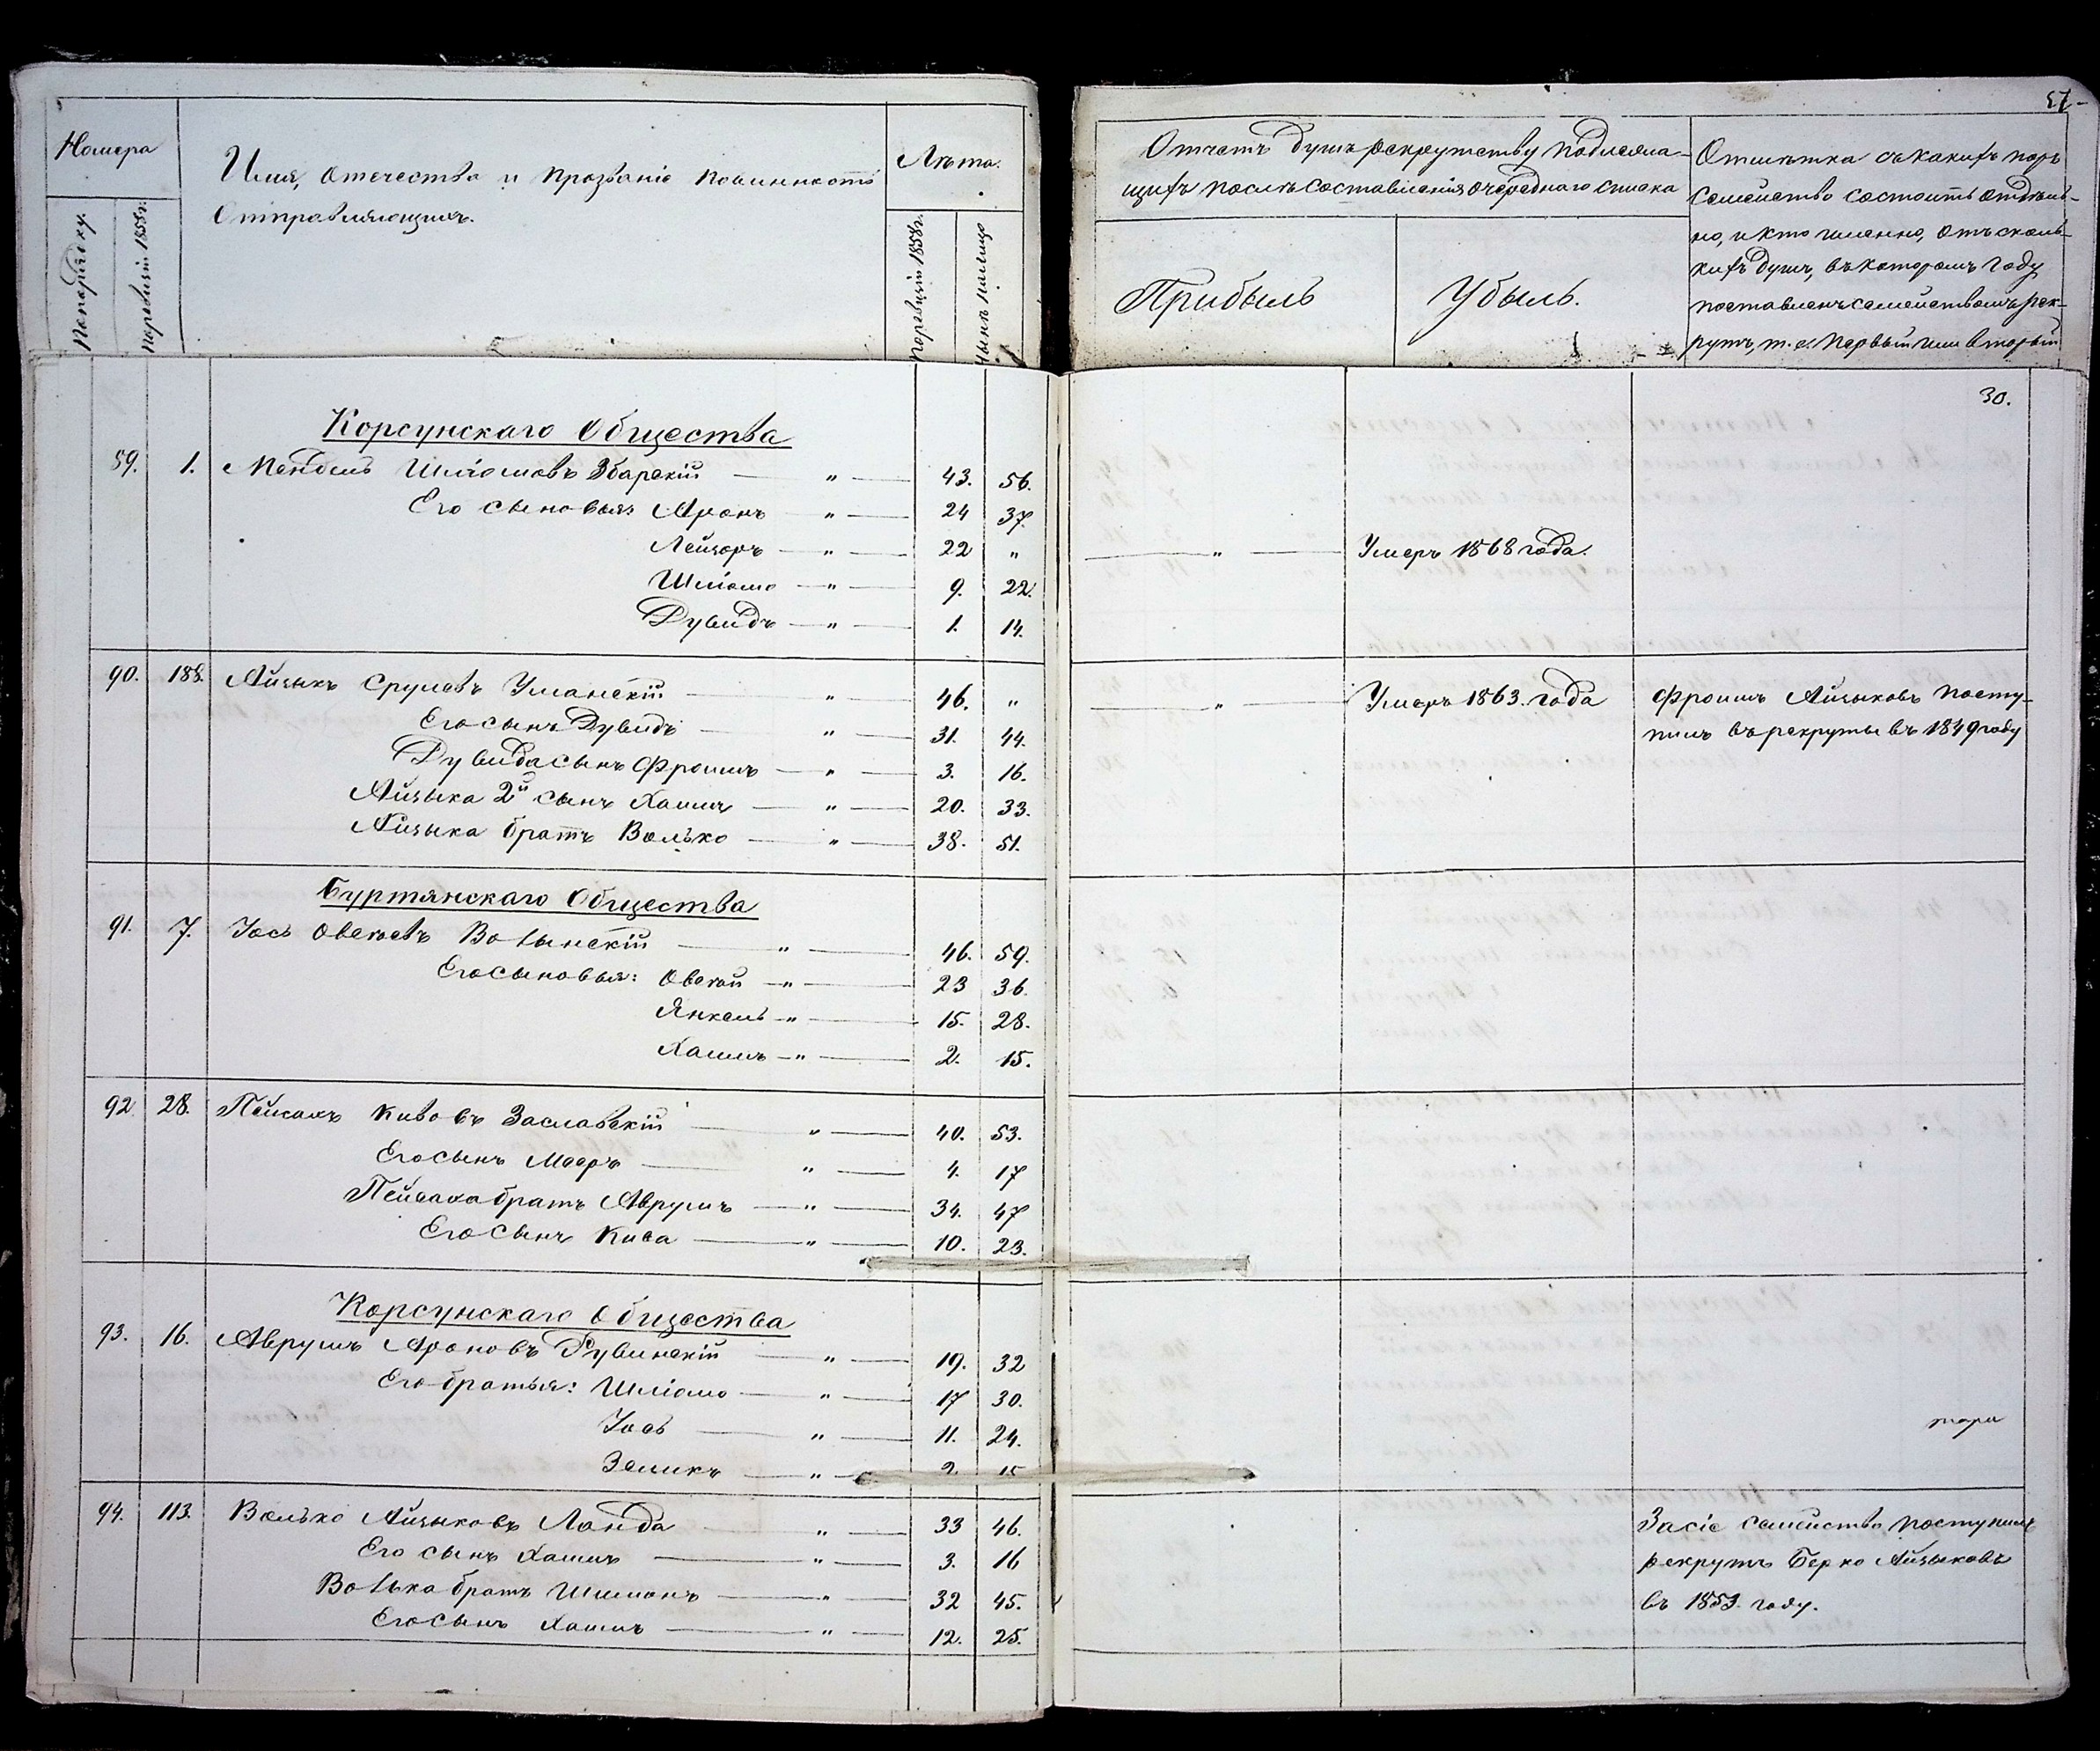 Номера
По порядку.
По ревизіи 1858 г.
Имя, Отечество и Прозваніе Повинность
Отправляющихъ.
Лѣта.
По ревизіи 1858 г.
Нынѣ налицо
57
Отчетъ душъ рекрутству подлежа-
щихъ послѣ составленія очереднаго списка
Прибыль
Убыль.
Отмѣтка съ какихъ поръ
семейство состоитъ отдѣль-
но, и кто именно, отъ сколь-
кихъ душъ, въ которомъ году
поставленъ семействомъ рек-
рутъ, т. е. первый или вторый
30.
Корсунскаго Общества
59. 1. Мендель Шліомовъ Збарскій — " — 43. 56.
Его сыновья: Аронъ — " — 24 37.
Лейзоръ — " — 22 " — " — Умеръ 1868 года.
Шліомо — " — 9. 22.
Дувидъ — " — 1. 14.
90. 188. Айзыкъ Срулевъ Уманскій — " — 46. " — " — Умеръ 1863. года Фроимъ Айзыковъ посту-
пилъ въ рекруты въ 1849 году
Его сынъ Дувидъ — " — 31. 44.
Дувида сынъ Фроимъ — " — 3. 16.
Айзыка 2й сынъ Хаимъ — " — 20. 33.
Айзыка братъ Волько — " — 38. 51.
Буртянскаго Общества
91. 7. Іось Овсеевъ Волынскій — " — 46. 59.
Его сыновья: Овсей — " — 23 36.
Янкель — " — 15. 28.
Хаимъ — " — 2. 15.
92. 28. Пейсахъ Кивовъ Заславскій — " — 40. 53.
Его сынъ Мееръ — " — 4. 17
Пейсаха братъ Аврумъ — " — 34. 47
Его сынъ Кива — " — 10. 23.
Корсунскаго Общества
93. 16. Аврумъ Ароновъ Рувинскій — " — 19. 32
Его братья: Шліомо — " — 17 30.
Іось — " — 11. 24.
Зеликъ — " — 2. 15
94. 113. Волько Айзыковъ Ланда " — 33 46.
Его сынъ Хаимъ — " — 3. 16
Волька братъ Шимонъ — " — 32 45.
Его сынъ Хаимъ — " — 12. 25.
За сіе семейство поступилъ
рекрутъ Берко Айзыковъ
въ 1853. году.